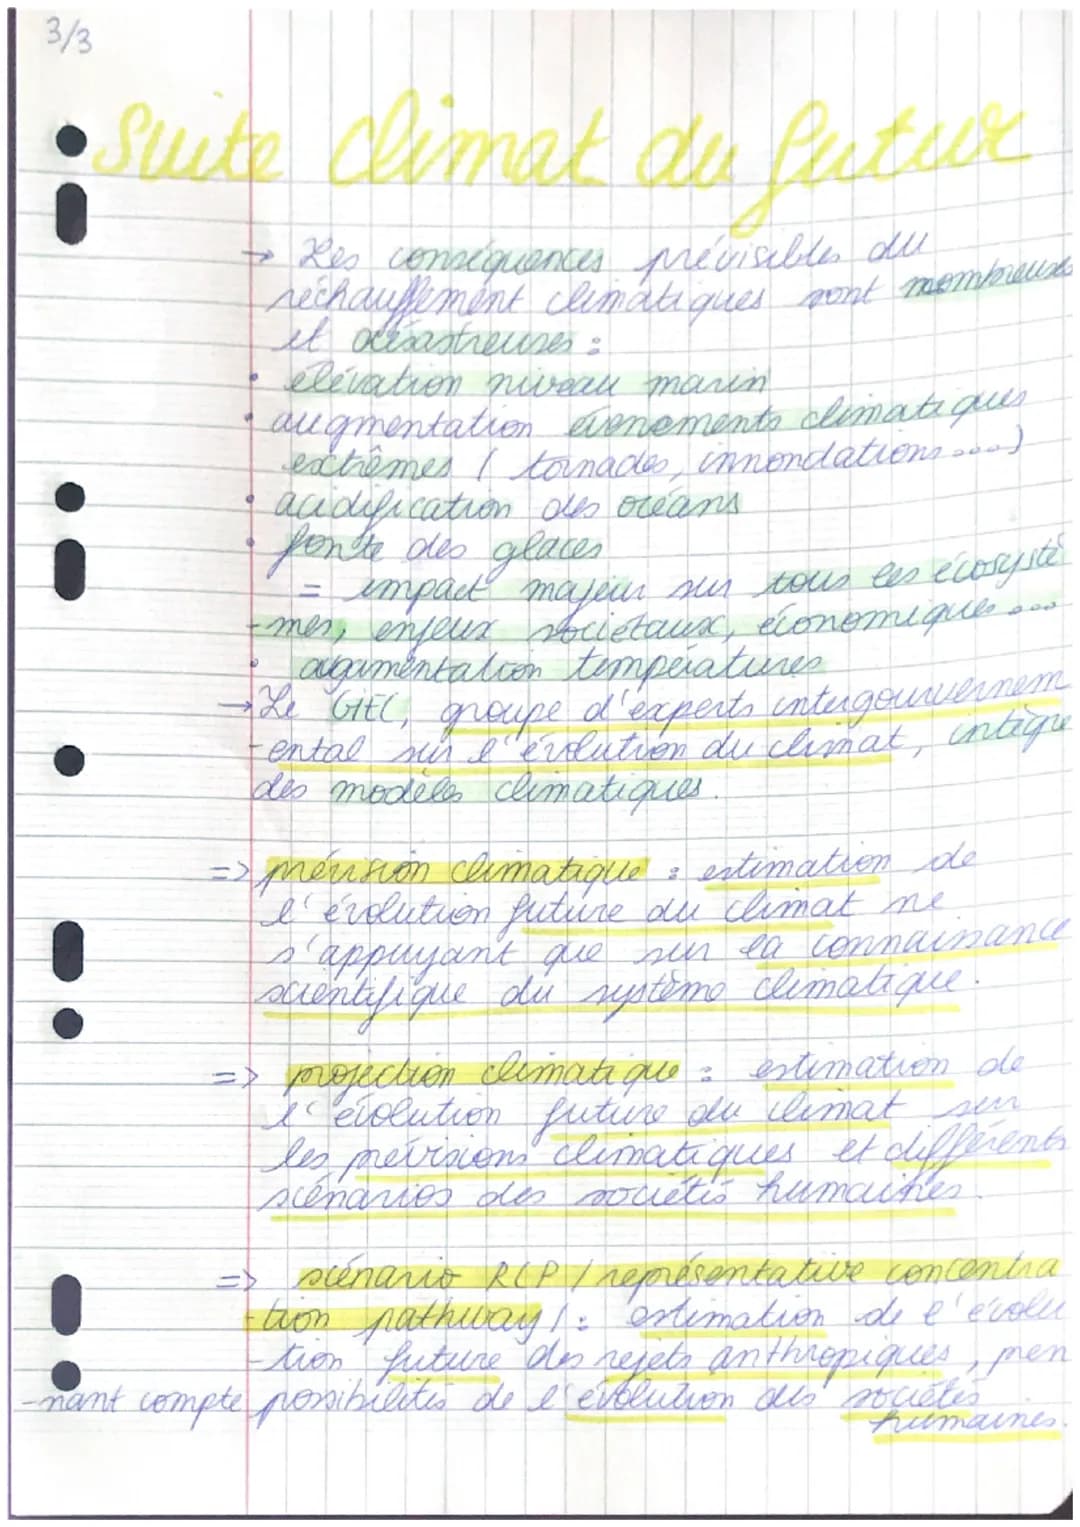 3/3
Suite climat du futur
→ Les conséquences prévisibles du
réchauffement climatiques sont nombreuses
et désastreuses :
• élévation niveau marin
• augmentation évenements climatiques
extrêmes ( tornades, innondations....)
• acidification des océans
• fonte des glaces
= impact majeur sur tous les écosystè
-mes, enjeux sociétaux, économiques...
• augmentation températures
→ Le GIEC, groupe d'experts intergouvernem
-ental sur l'évolution du climat, intègre
des modèles climatiques.
=> prévision climatique : estimation de
l'évolution future du climat ne
s'appuyant que sur la connaissance
scientifique du système climatique.
=> projection climatique : estimation de
l'évolution future du climat sur
les prévisions climatiques et différents
scénarios des sociétés humaines.
=> scénario RCP / représentative concentra
-tion pathway / : estimation de l'évolu
-tion future des rejets anthropiques, pren
-nant compte possibilités de l'évolution des sociétés
humaines.